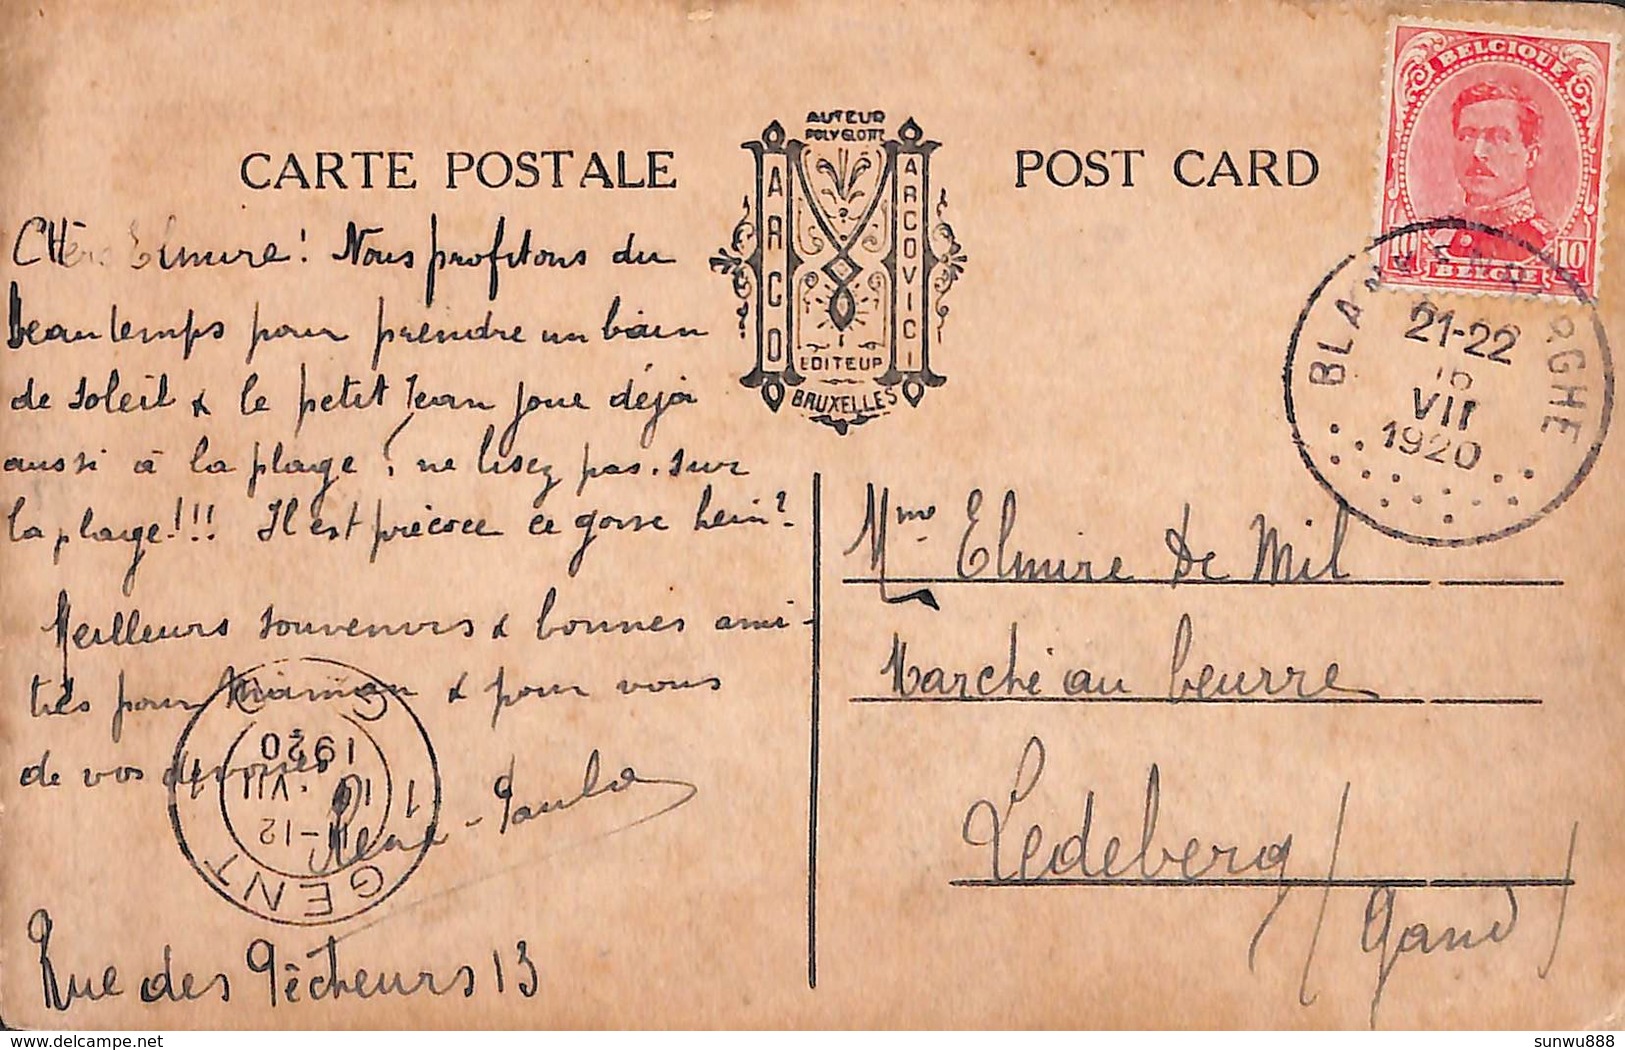 CARTE POSTALE
AUTEUR
POLYGLOTTE
ARCO
ARCOVICI
EDITEUR
BRUXELLES
POST CARD
BELGIQUE
10 10
BELGIË
BLANKENBERGHE
21-22
VII
1920
CHère Elmire! Nous profitons du
beau temps pour prendre un bain
de soleil & le petit Jean joue déjà
aussi à la plage, ne lisez pas. sur
la plage!!! Il est précoce ce gosse hein?
Meilleurs souvenirs & bonnes ami-
tiés pour maman & pour vous
de vos dévoués
René-Paula
Rue des Pêcheurs 13
GENT
11-12
VII
1920
1 G
Mme Elmire De Mil
Marché au beurre
Ledeberg
(Gand)
delcampe.net
sunwu888